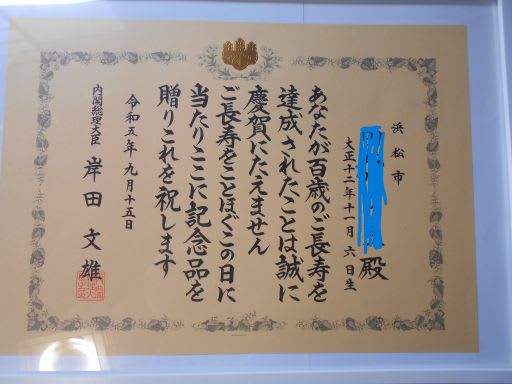 浜松市
殿
大正十二年十一月六日生
あなたが百歳のご長寿を
達成されたことは誠に
慶賀にたえません
ご長寿をことほぐこの日に
当たりここに記念品を
贈りこれを祝します
令和五年九月十五日
内閣総理大臣 岸田文雄